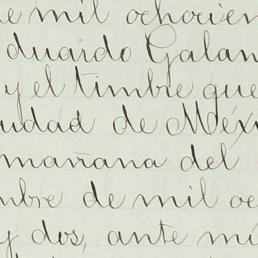 de mil ochocien
duardo Galan
y el timbre que
iudad de Méxi
mañana del
mbre de mil oc
y dos, ante mí